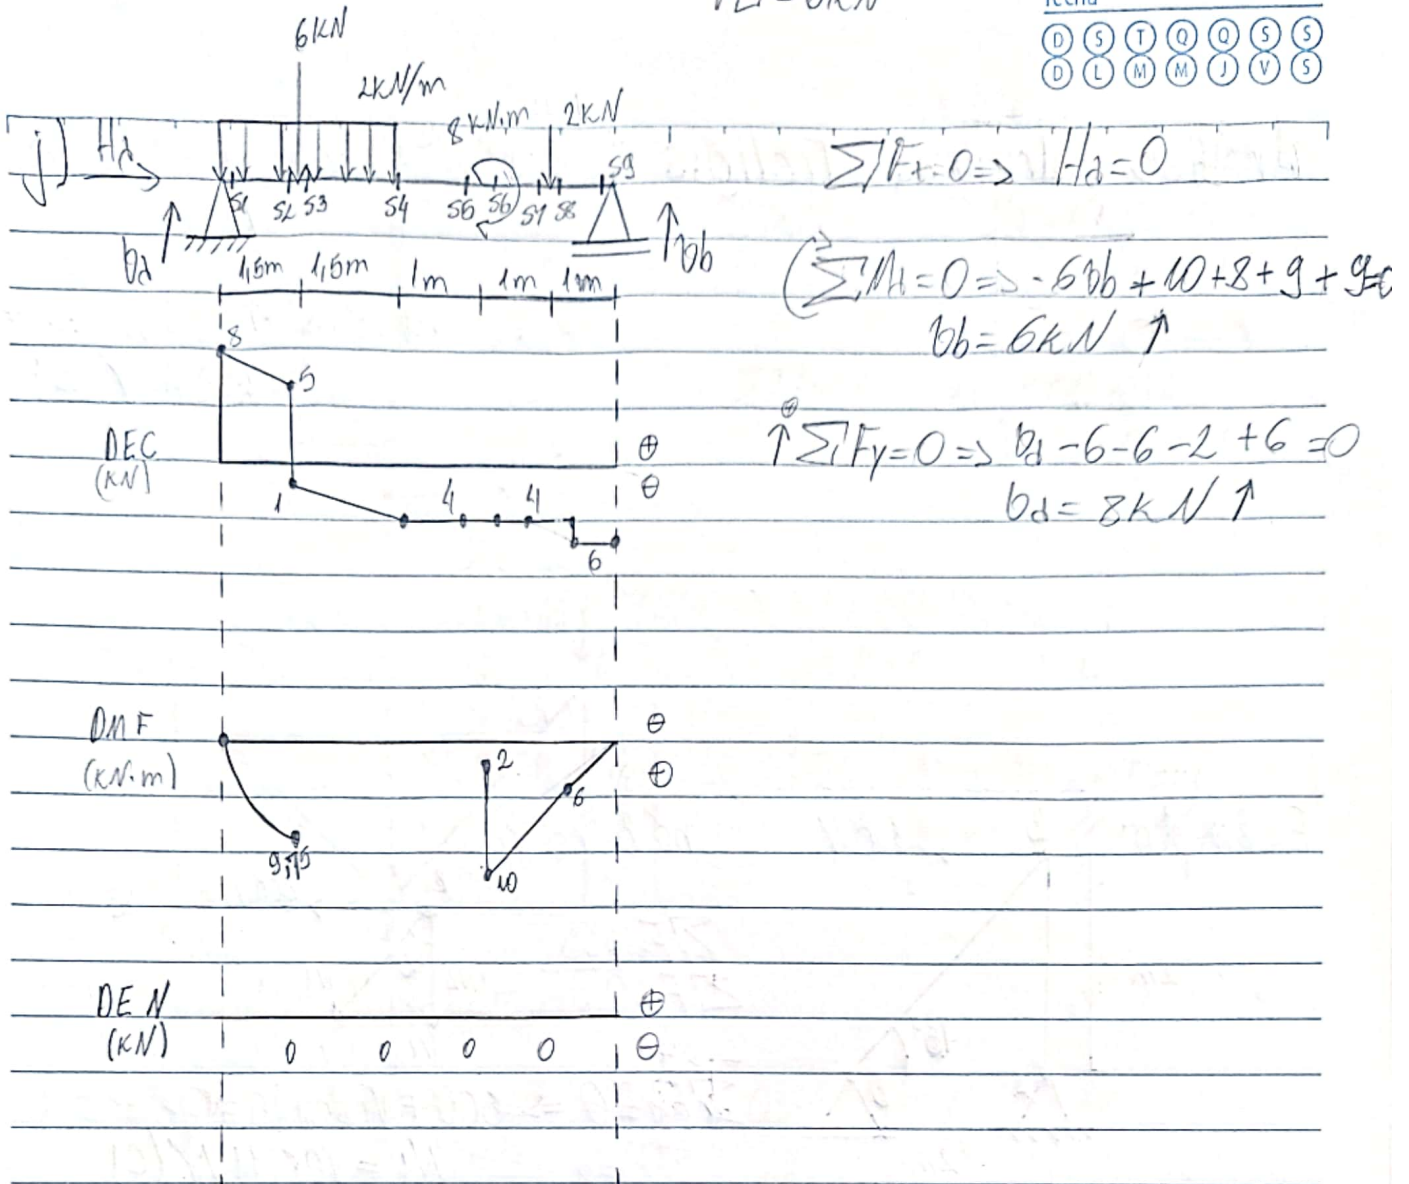 fecha
D S T Q Q S S
D L M M J V S
6KN
2KN/m
8KN.m 2KN
j) Ha
S1 S2 S3 S4 S5 S6 S7 S8 S9
Va Vb
1,5m 1,5m 1m 1m 1m
ΣFx=0=> Ha=0
ΣMa=0=> -6Vb+10+8+9+9=0
Vb=6KN ↑
⊕
↑ΣFy=0=> Va-6-6-2+6=0
Va=8KN ↑
8
5
DEC ⊕
(KN) ⊖
1 4 4
6
DMF ⊖
(KN.m) 2 ⊕
6
9,75
10
DEN ⊕
(KN) 0 0 0 0 ⊖